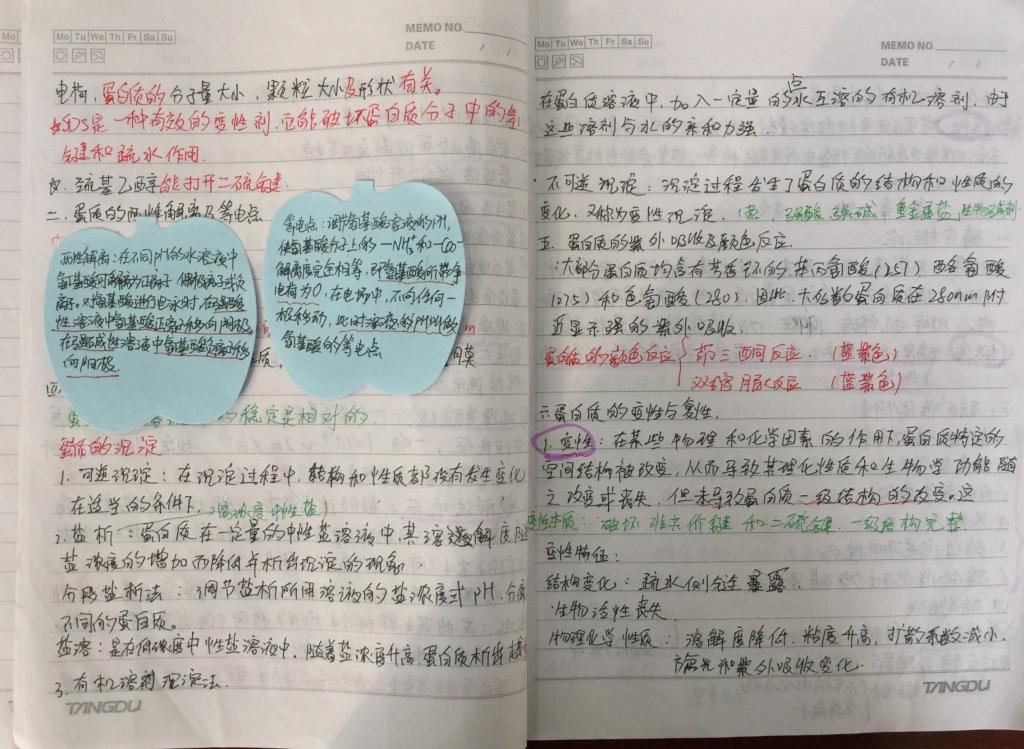 Mo Tu We Th Fr Sa Su
MEMO NO.
DATE / /
电荷,蛋白质的分子量大小,颗粒大小及形状有关。
SDS是一种有效的变性剂,它能破坏蛋白质分子中的氢
键和疏水作用.
巯基乙醇能打开二硫键.
二.蛋质的两性解离及等电点
两性解离:在不同pH的水溶液中
氨基酸可解离为正离子
离子。对氨基酸进行电泳时,在强酸
性溶液中氨基酸正离子移向阴极
在强碱性溶液中氨基酸负离子移
向阳极.
等电点:调节氨基酸溶液的pH,
使氨基酸分子上的-NH₃⁺和-COO⁻
解离度完全相等,即氨基酸所带净
电荷为0,在电场中,不向任何一
极移动,此时溶液的pH叫做
氨基酸的等电点
质,
用膜
四
的稳定是相对的
蛋质的沉淀
1.可逆沉淀:在沉淀过程中,结构和性质都没有发生变化
在适当的条件下,
(高浓度中性盐)
2.盐析:蛋白质在一定量的中性盐溶液中,其溶解度随
盐浓度的增加而降低并析出沉淀的现象
分段盐析法:调节盐析所用溶液的盐浓度或pH,分离
不同的蛋白质。
盐溶:是在低浓度中性盐溶液中,随着盐浓度升高,蛋白质
3.有机溶剂沉淀法.
TANGDU
Mo Tu We Th Fr Sa Su
MEMO NO.
DATE / /
点
在蛋白质溶液中,加入一定量的水互溶的有机溶剂,由于
这些溶剂与水的亲和力强.
·不可逆沉淀:沉淀过程发生了蛋白质的结构和性质的
变化.又称为变性沉淀.(热,强酸强碱,重金属盐,生物碱试剂
五.蛋白质的紫外吸收及颜色反应.
大部分蛋白质均含有芳香环的苯丙氨酸(257)酪氨酸
(275)和色氨酸(280).因此,大多数蛋白质在280nm附
近显示强的紫外吸收. 附
蛋白质的颜色反应
茚三酮反应.(蓝紫色)
双缩脲反应 (蓝紫色)
六蛋白质的变性与复性.
1.变性:在某些物理和化学因素的作用下,蛋白质特定的
空间结构被改变,从而导致其理化性质和生物学功能随
之改变或丧失,但未导致蛋白质一级结构的改变.这
变性本质:破坏非共价键和二硫键,一级结构完整
变性特征:
结构变化:疏水侧链暴露
生物活性丧失.
物理化学性质:溶解度降低.粘度升高,扩散系数减小.
旋光和紫外吸收变化.
TANGDU